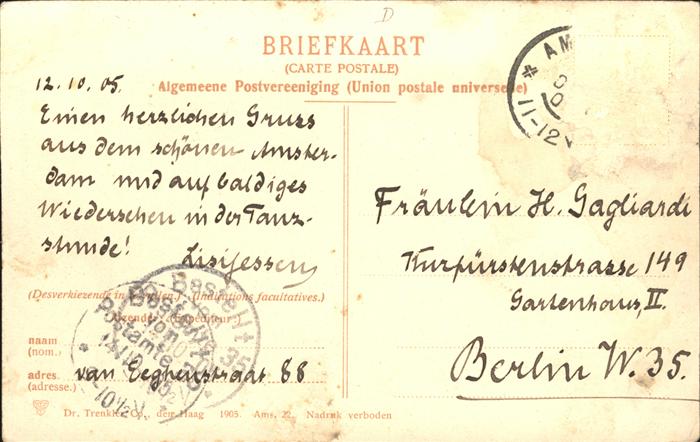 D
BRIEFKAART
(CARTE POSTALE)
Algemeene Postvereeniging (Union postale universelle)
12.10.05.
Einen herzlichen Gruss
aus dem schönen Amster-
dam und auf baldiges
Wiedersehen in der Tanz-
stunde!
Lisi Jessen
AM
11-12V
Fräulein H. Gagliardi
Kurfürstenstrasse 149
Gartenhaus, II.
Berlin W. 35.
(Desverkiezende in te vullen.) (Indications facultatives.)
Afzender: (Expéditeur)
naam
(nom.)
adres.
(adresse.)
van Eeghenstraat 88
Bestellt
vom
Postamte
35
10½V.
Dr. Trenkler Co., den Haag 1905. Ams. 22. Nadruk verboden